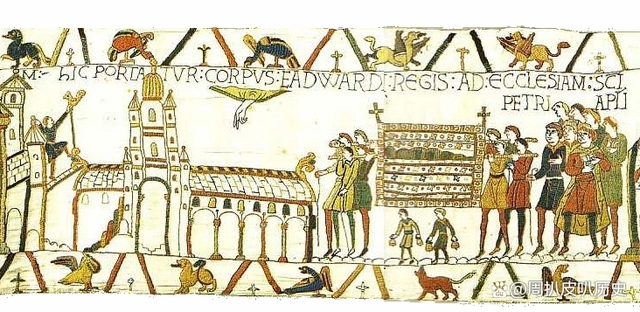 M:- HIC PORTATVR: CORPVS: EADWARDI: REGIS: AD: ECCLESIAM: SCI
PETRI APLI
@周扒皮叭历史